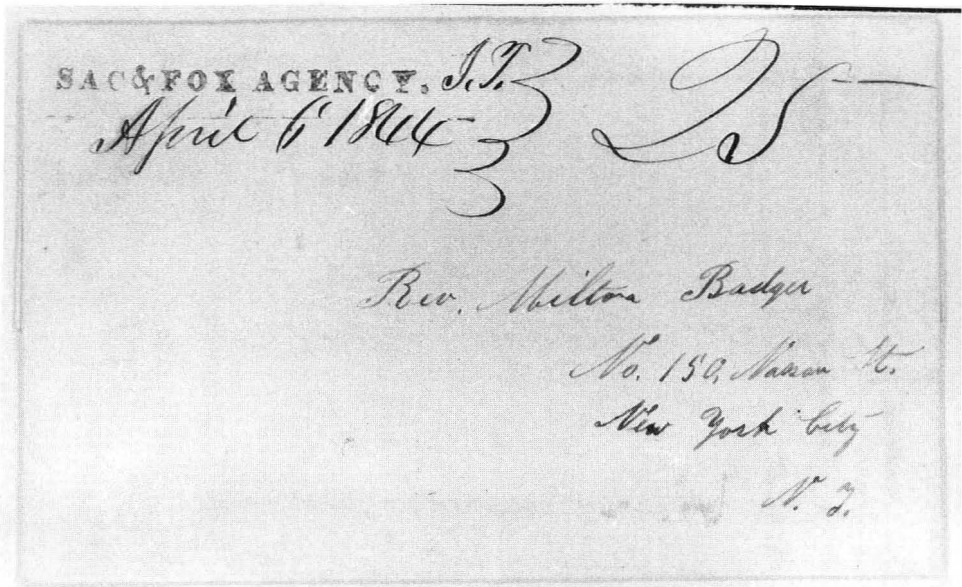 SAC & FOX AGENCY, I.T.
April 6 1844
25
Rev. Milton Badger
No. 150, Nassau St.
New York City
N. Y.